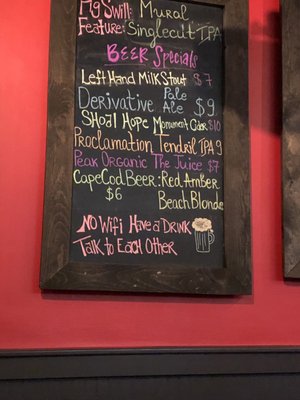 Pg Swill: Mural
Feature: Singlecut IPA
BEER Specials
Left Hand Milk Stout $7
Derivative Pale Ale $9
Shoal Hope $10
Proclamation Tendril IPA 9
Peak Organic The Juice $7
Cape Cod Beer: Red Amber
$6 Beach Blonde
No Wifi Have a Drink
Talk to Each Other